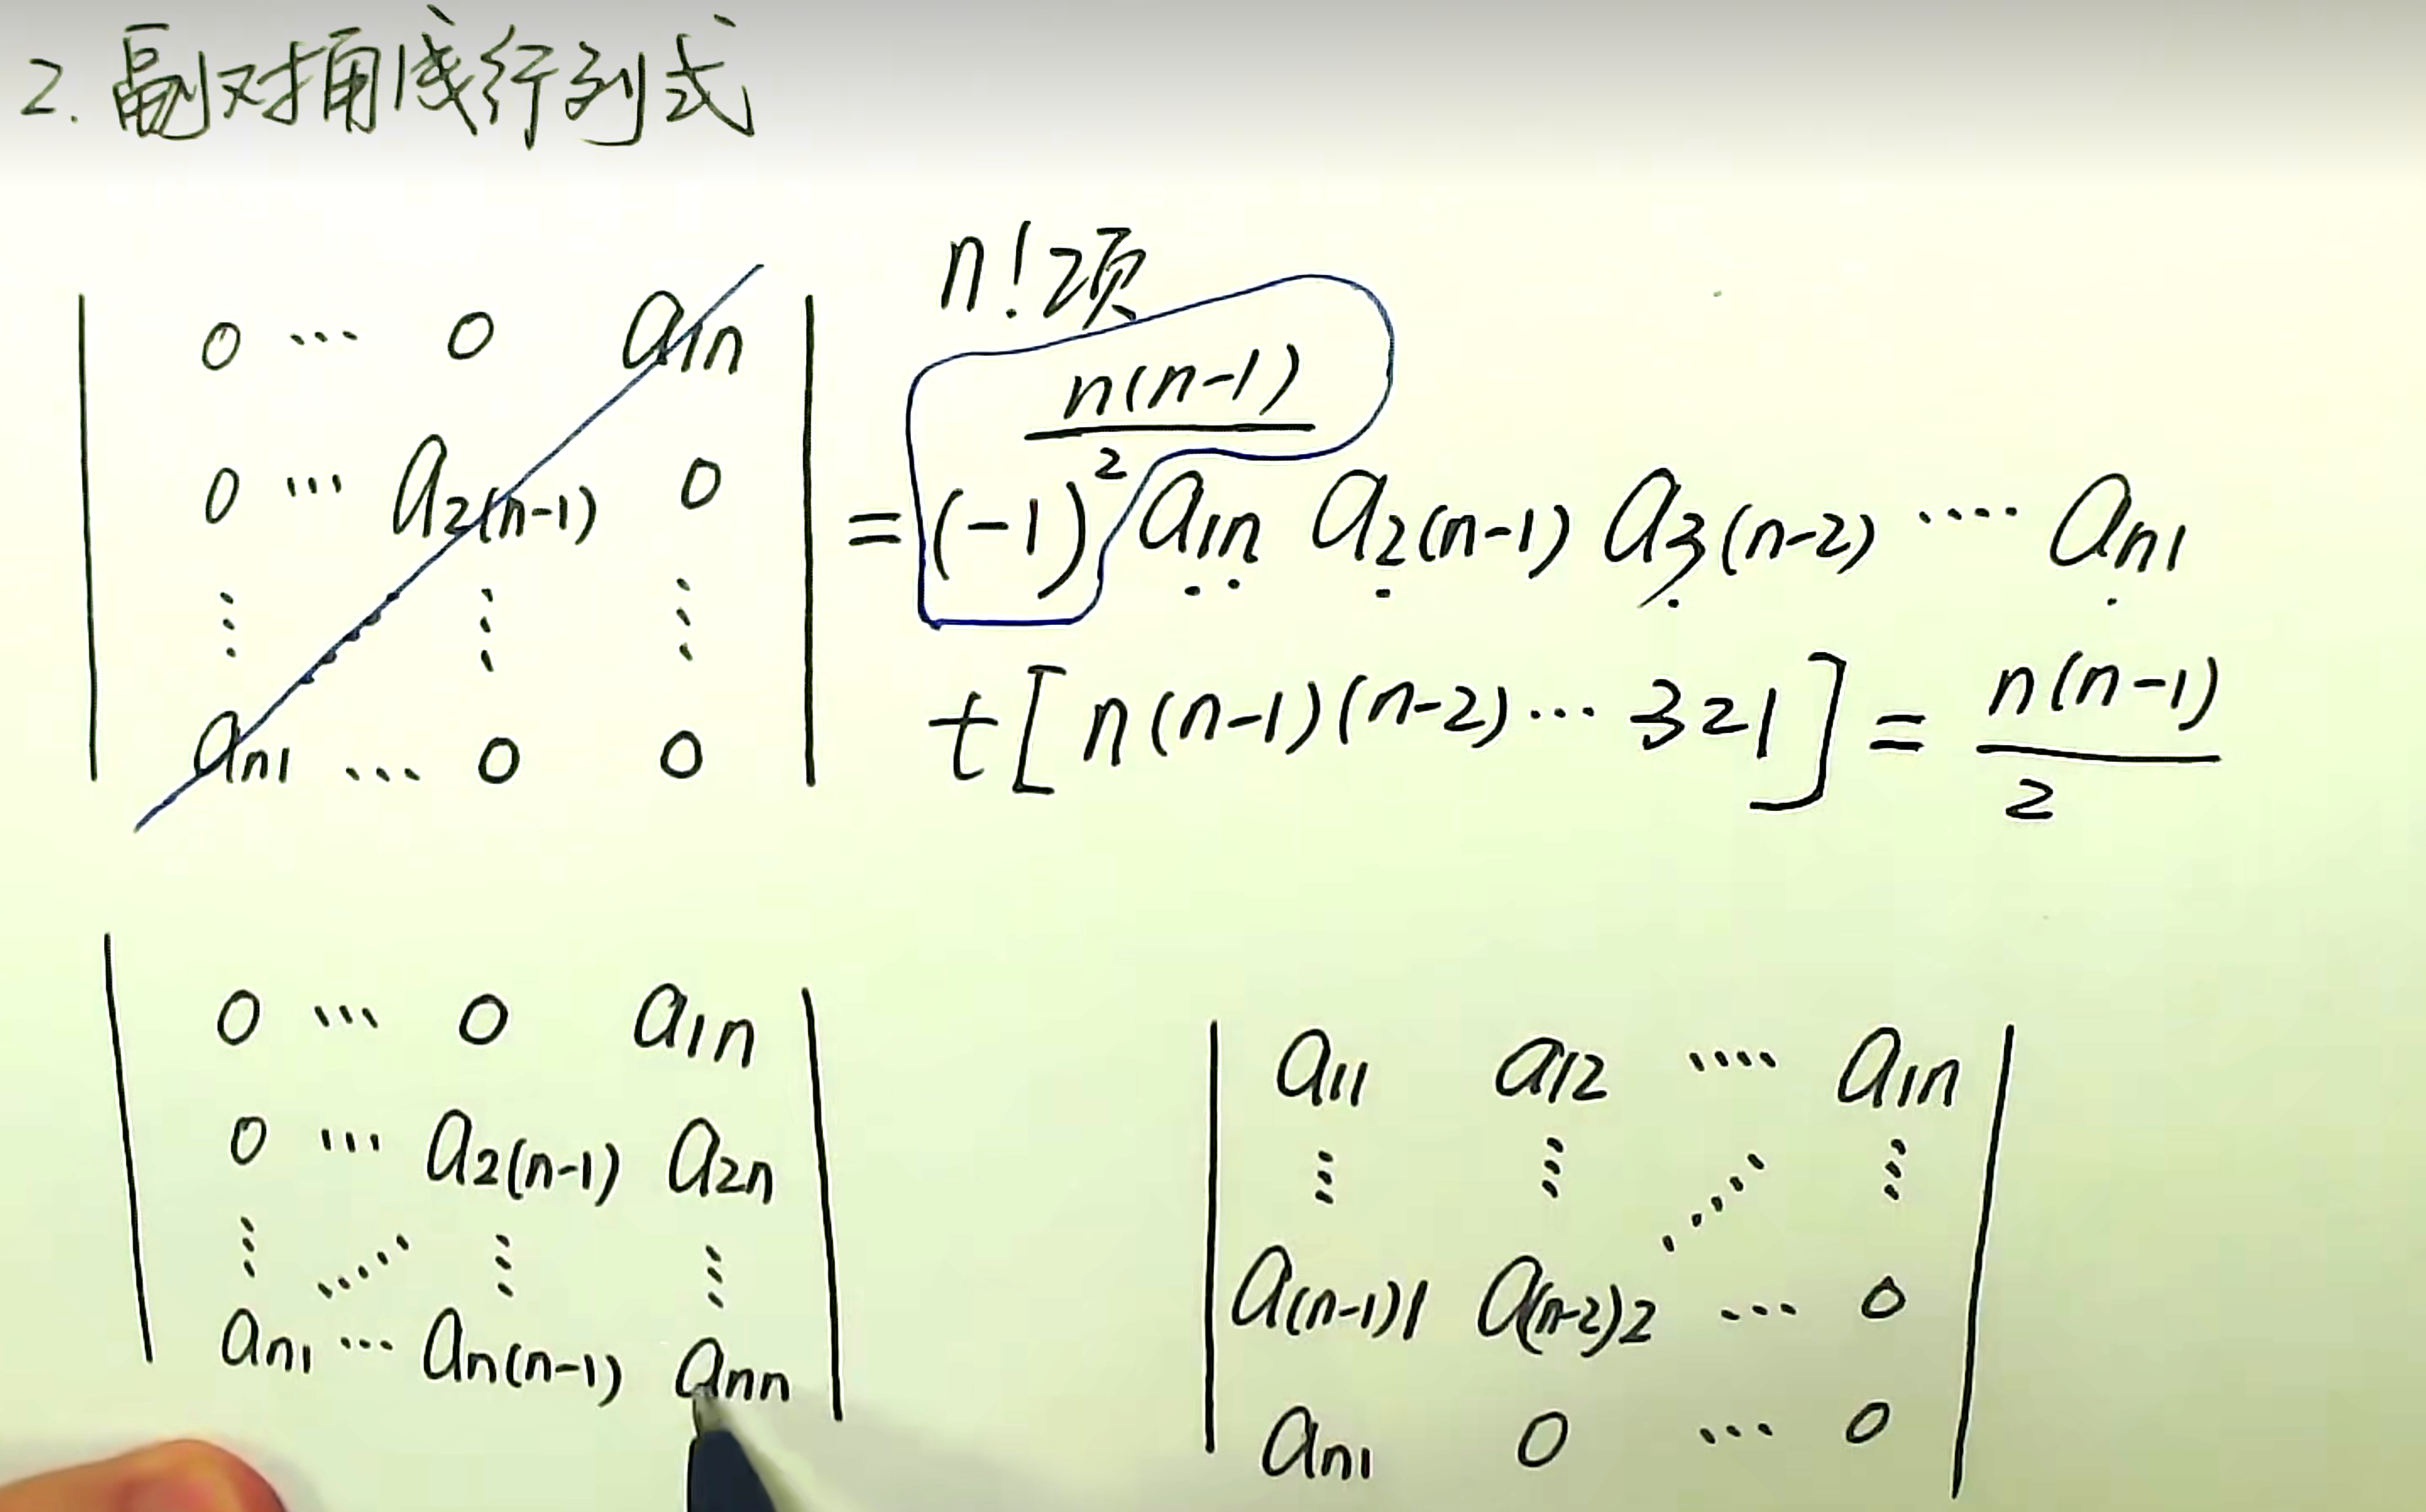 2. 副对角线行列式
n!项
| 0 ... 0 a1n |
| 0 ... a2(n-1) 0 |
| ⋮ ⋮ ⋮ |
| an1 ... 0 0 |
= (-1)^(n(n-1)/2) a1n a2(n-1) a3(n-2) .... an1
t[n(n-1)(n-2)... 321] = n(n-1)/2
| 0 ... 0 a1n |
| 0 ... a2(n-1) a2n |
| ⋮ ..... ⋮ ⋮ |
| an1 ... an(n-1) ann |
| a11 a12 .... a1n |
| ⋮ ⋮ ..... ⋮ |
| a(n-1)1 a(n-2)2 ... 0 |
| an1 0 ... 0 |